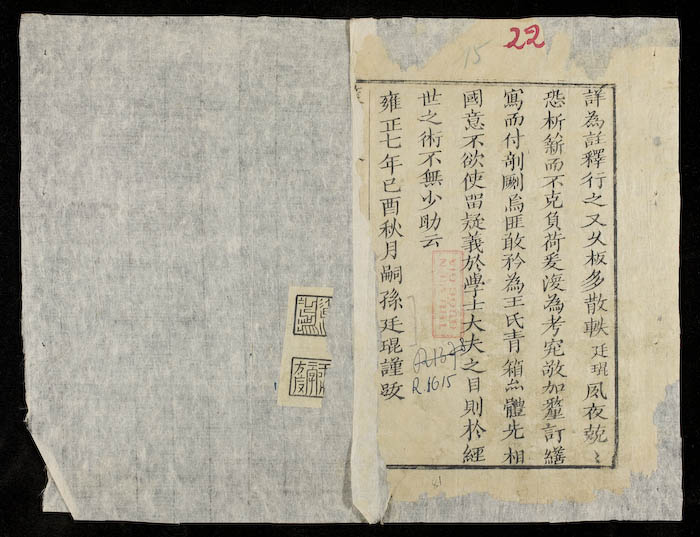 22
15
詳為註釋行之又久板多散軼廷琨夙夜兢〻
恐析薪而不克負荷爰浚為考究敬加釐訂繕
寫而付剞劂焉匪敢矜為王氏青箱亦體先相
國意不欲使留疑義於學士大夫之目則於經
世之術不無少助云
雍正七年己酉秋月嗣孫廷琨謹跋
R.1623
R.1615